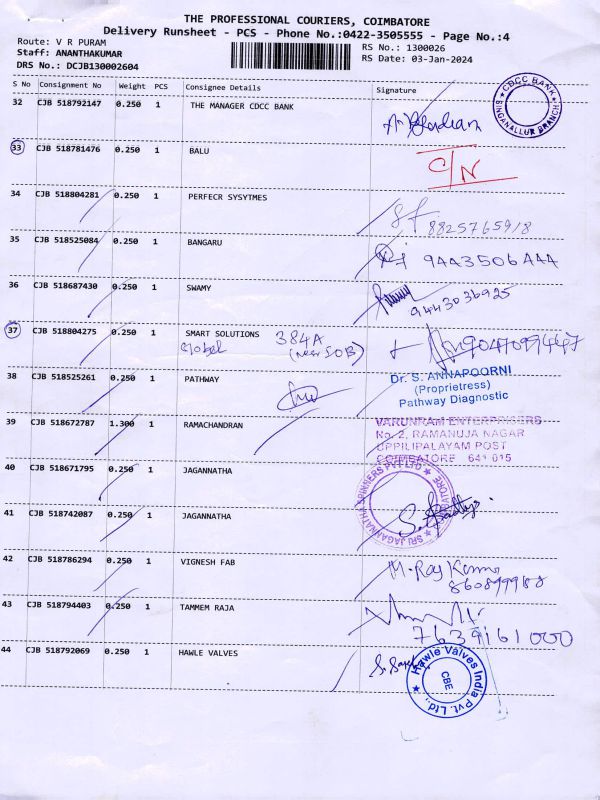 THE PROFESSIONAL COURIERS, COIMBATORE
Delivery Runsheet - PCS - Phone No.:0422-3505555 - Page No.:4
Route: V R PURAM
RS No.: 1300026
Staff: ANANTHAKUMAR
RS Date: 03-Jan-2024
DRS No.: DCJB130002604
S No Consignment No Weight PCS Consignee Details Signature
32 CJB 518792147 0.250 1 THE MANAGER CDCC BANK
CDCC BANK
SINGANALLUR BRANCH
33 CJB 518781476 0.250 1 BALU C/N
34 CJB 518804281 0.250 1 PERFECR SYSYTMES
8825765918
35 CJB 518525084 0.250 1 BANGARU 9443506444
36 CJB 518687430 0.250 1 SWAMY
9443036925
37 CJB 518804275 0.250 1 SMART SOLUTIONS 384A
Global (near IOB)
38 CJB 518525261 0.250 1 PATHWAY
Dr. S. ANNAPOORNI
(Proprietress)
Pathway Diagnostic
39 CJB 518672787 1.300 1 RAMACHANDRAN
VARUNRAM ENTERPRISERS
No. 2, RAMANUJA NAGAR
UPPILIPALAYAM POST
COIMBATORE 641 015
40 CJB 518671795 0.250 1 JAGANNATHA
SRI JAGANNATHA PRINSERS PVT LTD
41 CJB 518742087 0.250 1 JAGANNATHA
42 CJB 518786294 0.250 1 VIGNESH FAB M. Raj Kumar
43 CJB 518794403 0.250 1 TAMMEM RAJA
7639161000
44 CJB 518792069 0.250 1 HAWLE VALVES
Hawle Valves India Pvt. Ltd.,
CBE